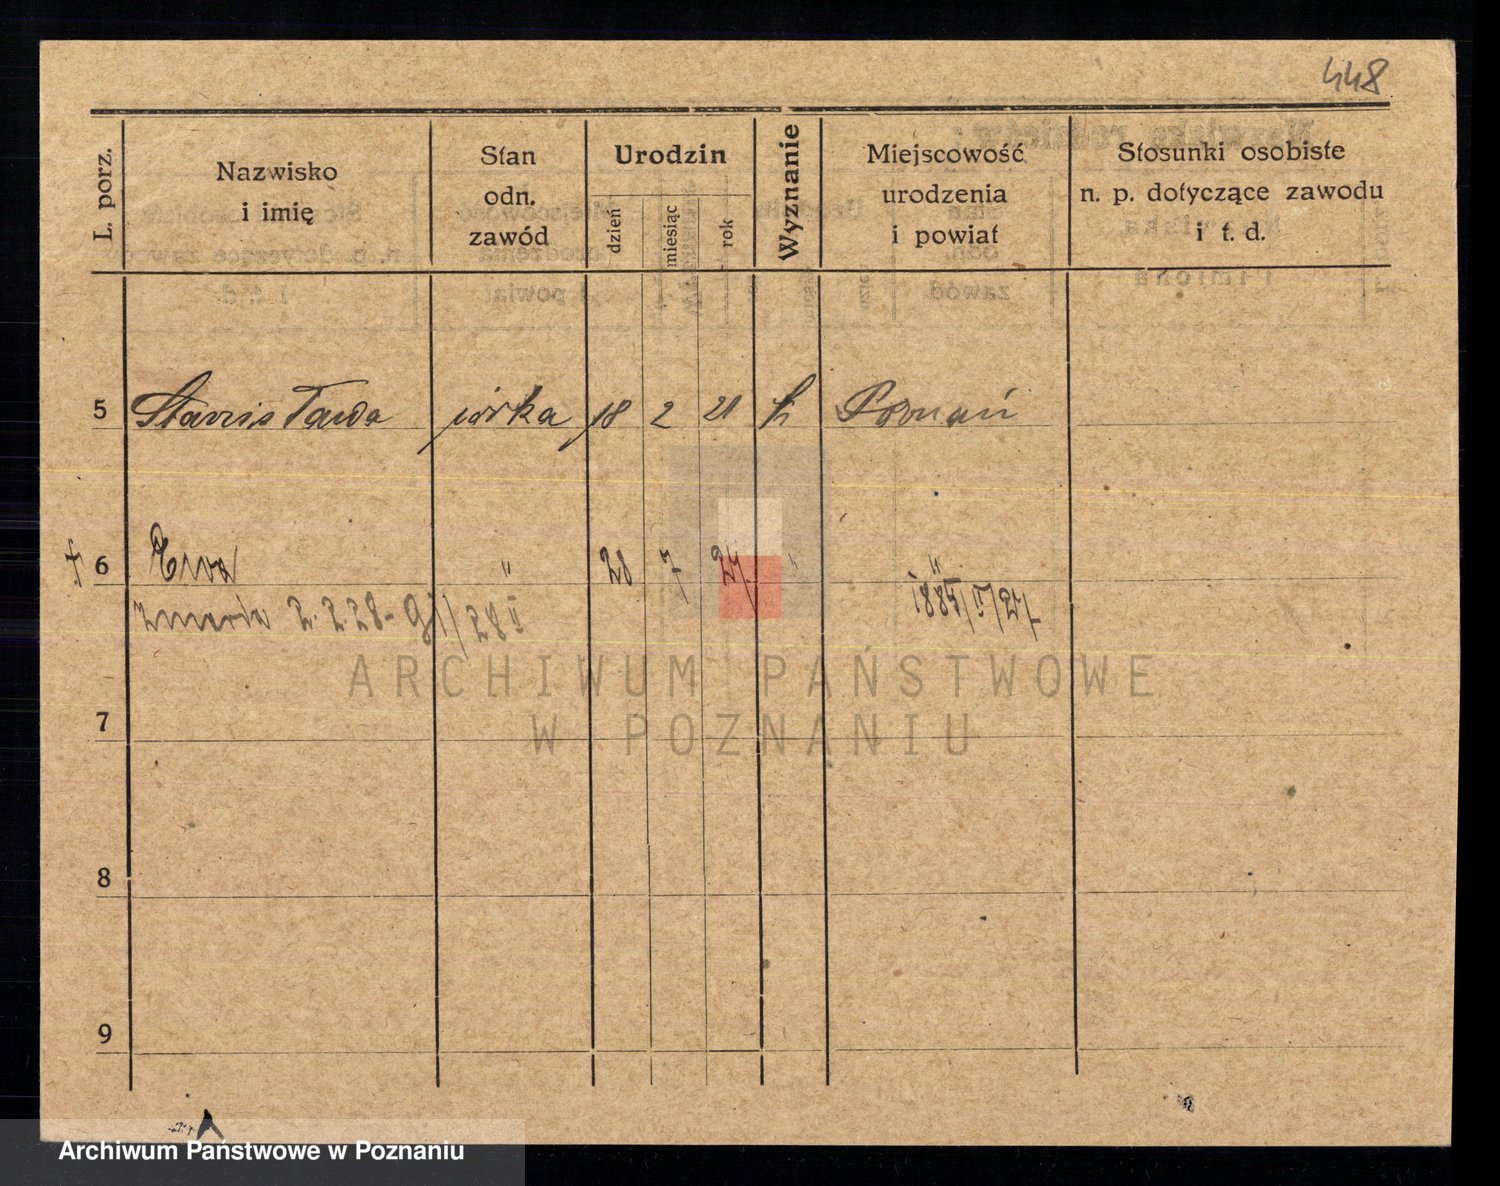 448
L. porz.
Nazwisko
i imię
Stan
odn.
zawód
Urodzin
dzień
miesiąc
rok
Wyznanie
Miejscowość
urodzenia
i powiat
Stosunki osobiste
n. p. dotyczące zawodu
i t. d.
5 Stanisława córka 18 2 21 k Poznań
† 6 Ewa " 28 7 27. " "
zmarła 2.2.28-
7
8
9
ARCHIWUM PAŃSTWOWE
W POZNANIU
Archiwum Państwowe w Poznaniu